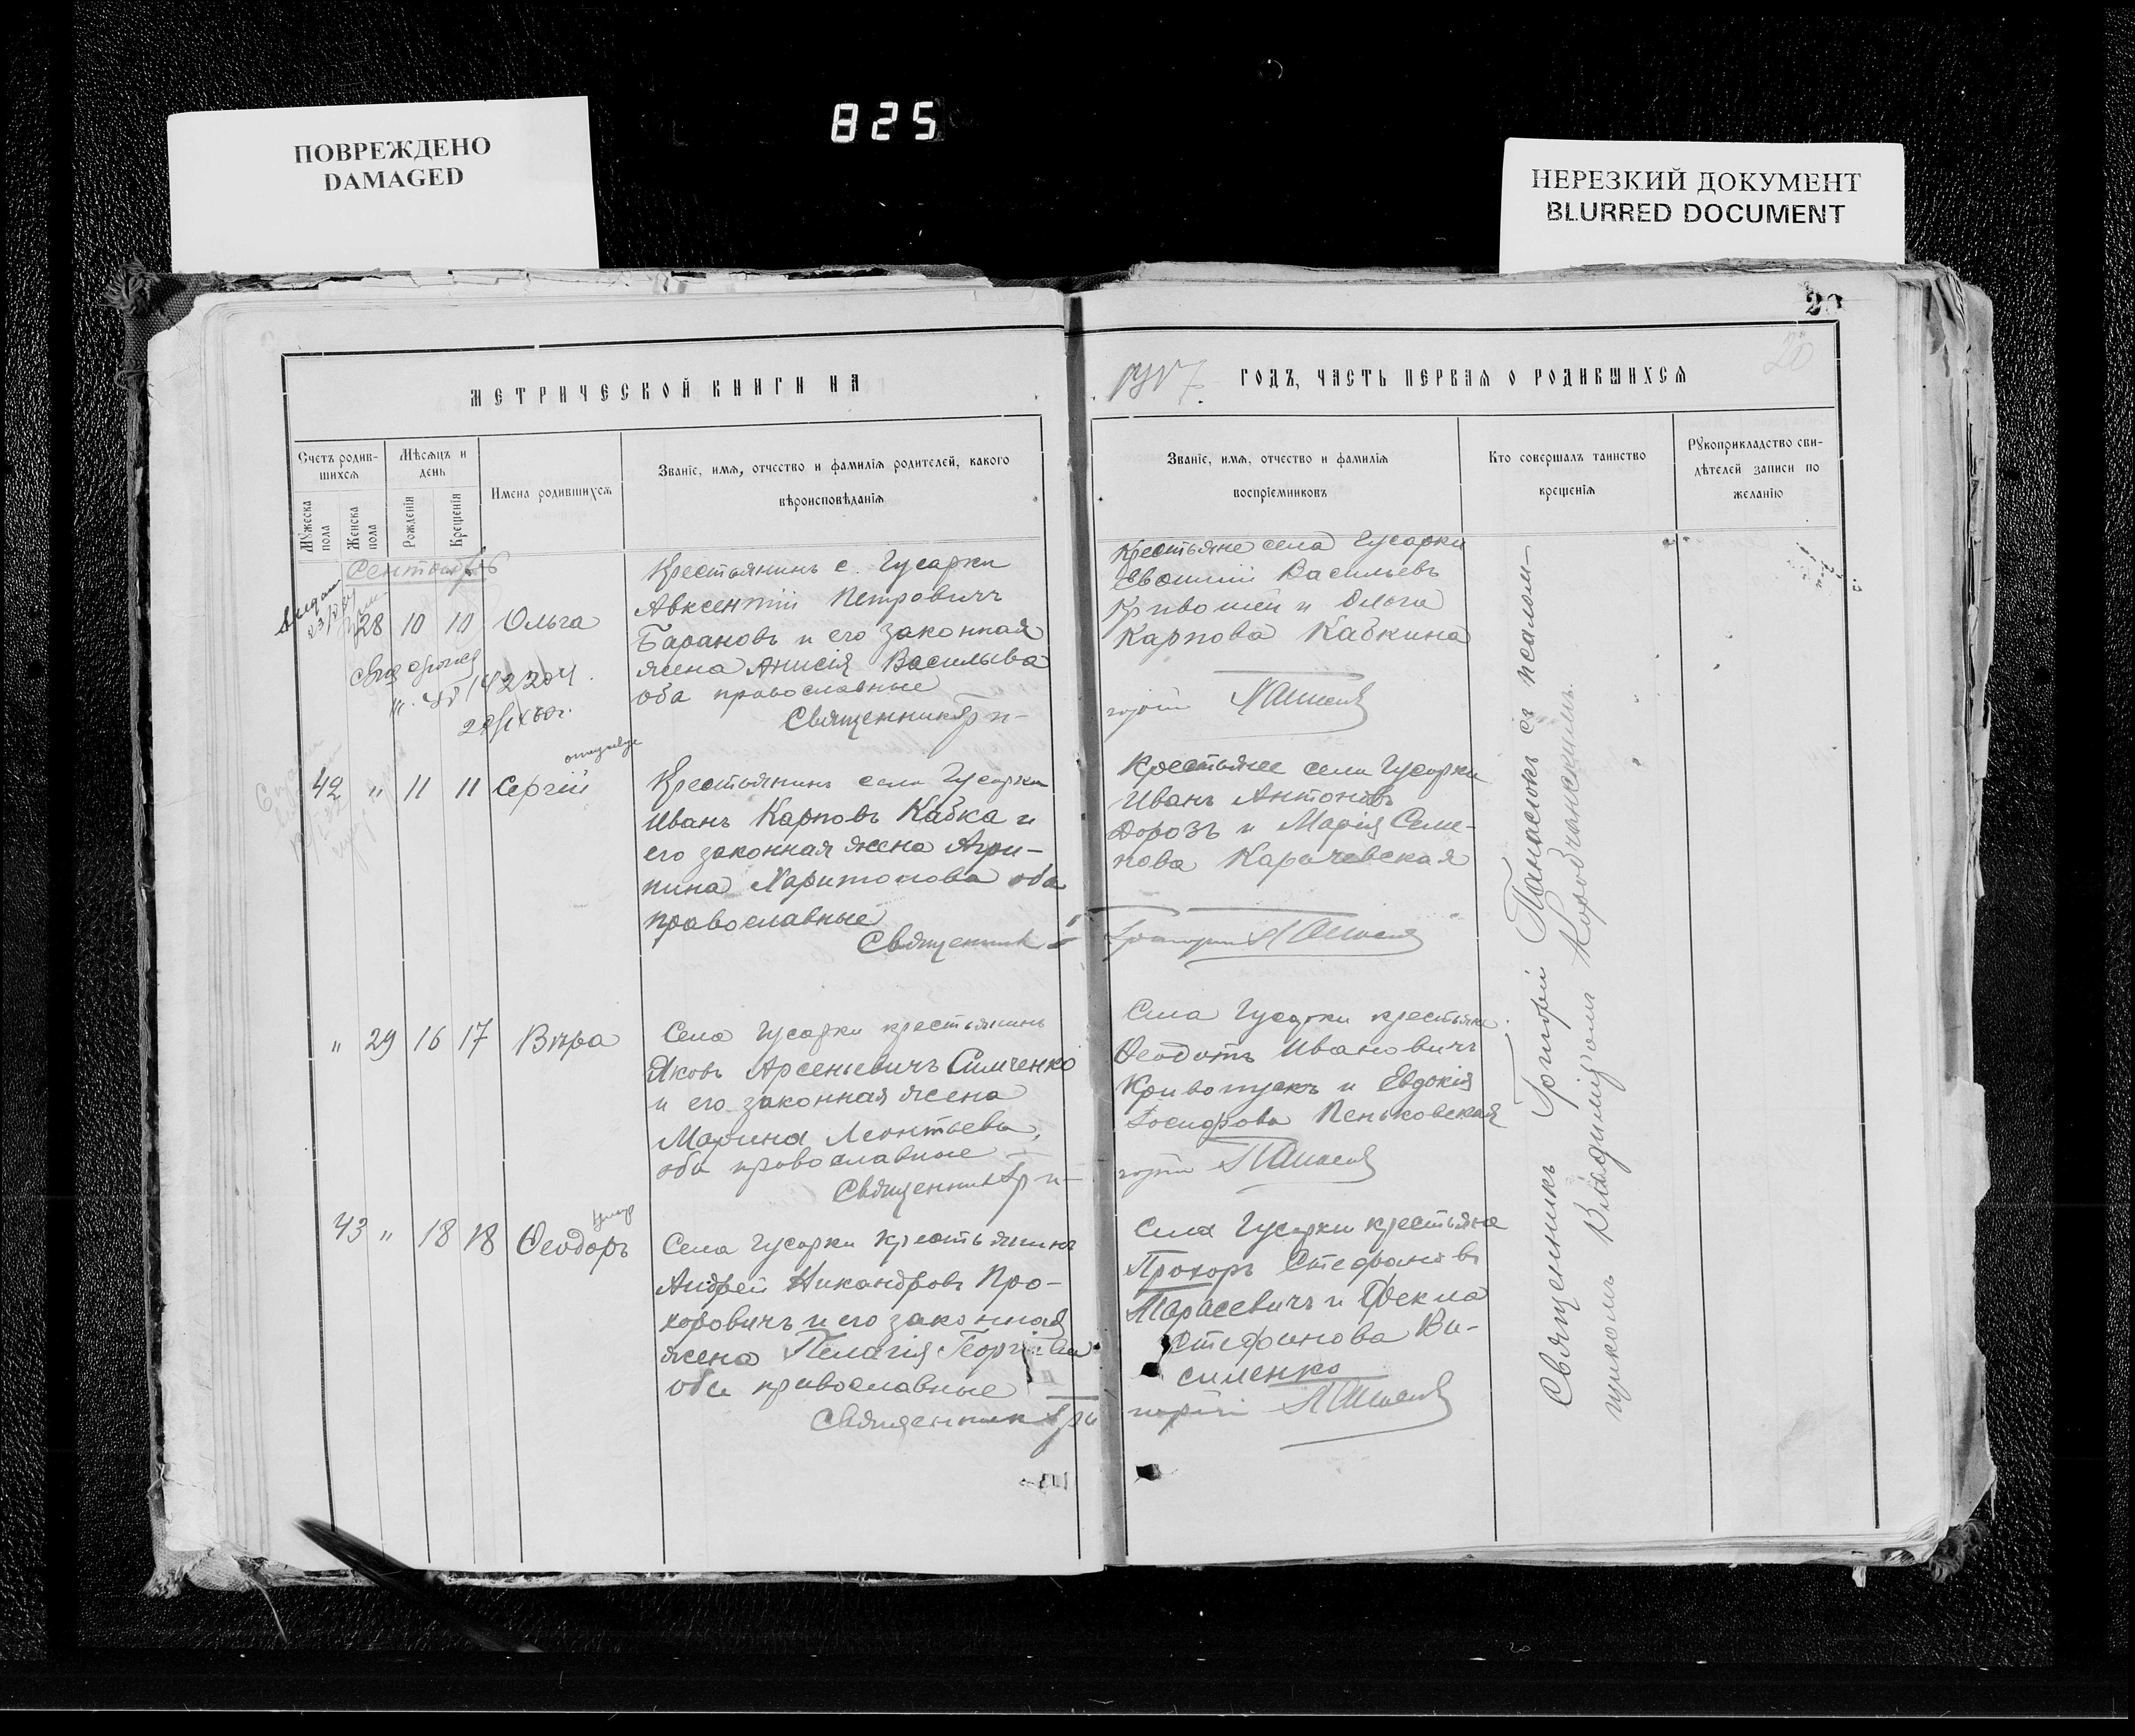 825
ПОВРЕЖДЕНО
DAMAGED
НЕРЕЗКИЙ ДОКУМЕНТ
BLURRED DOCUMENT
20
20
МЕТРИЧЕСКОЙ КНИГИ НА
ГОДЪ, ЧАСТЬ ПЕРВАЯ О РОДИВШИХСЯ
Счетъ родив-
шихся
Мужеска
пола
Женска
пола
Мѣсяцъ и
день
Рожденія
Крещенія
Имена родившихся
Званіе, имя, отчество и фамилія родителей, какого
вѣроисповѣданія
Званіе, имя, отчество и фамилія
воспріемниковъ
Кто совершалъ таинство
крещенія
Рукоприкладство сви-
дѣтелей записи по
желанію
Сентябрь
28 10 10 Ольга
Крестьянинъ с. Гусарки
Авксентій Петровичъ
Барановъ и его законная
жена Анисія Васильева
оба православные
Священникъ Гри-
Крестьяне села Гусарки
Васильевъ
Кривошей и Ольга
Карпова Кабкина
горій Панасюк
42 " 11 11 Сергій
Крестьянинъ села Гусарки
Иванъ Карповъ Кабка и
его законная жена Агри-
пина Харитонова оба
православные
Священник
Крестьяне села Гусарки
Иванъ Антоновъ
Дорозъ и Марія Семе-
нова Карачевская
Григорий Панасюк
" 29 16 17 Вѣра
Села Гусарки крестьянинъ
Яковъ Арсеньевичъ Симченко
и его законная жена
Марина Леонтьева,
оба православные
Священник Гри-
Села Гусарки крестьяне
Ѳеодотъ Ивановичъ
и Евдокія
Іосифова Пеньковская
горій Панасюк
43 " 18 18 Ѳеодоръ
умер
Села Гусарки крестьянинъ
Андрей Никандровъ Про-
хоровичъ и его законная
жена Пелагія Георгіева
оба православные
Священник Гри
Села Гусарки крестьяне
Прохоръ Стефановъ
Тарасевичъ и Ѳекла
Стефанова Ва-
силенко
горій Панасюк
Священникъ Григорій Панасюкъ съ псалом-
щикомъ Владиміромъ Коробчанскимъ.